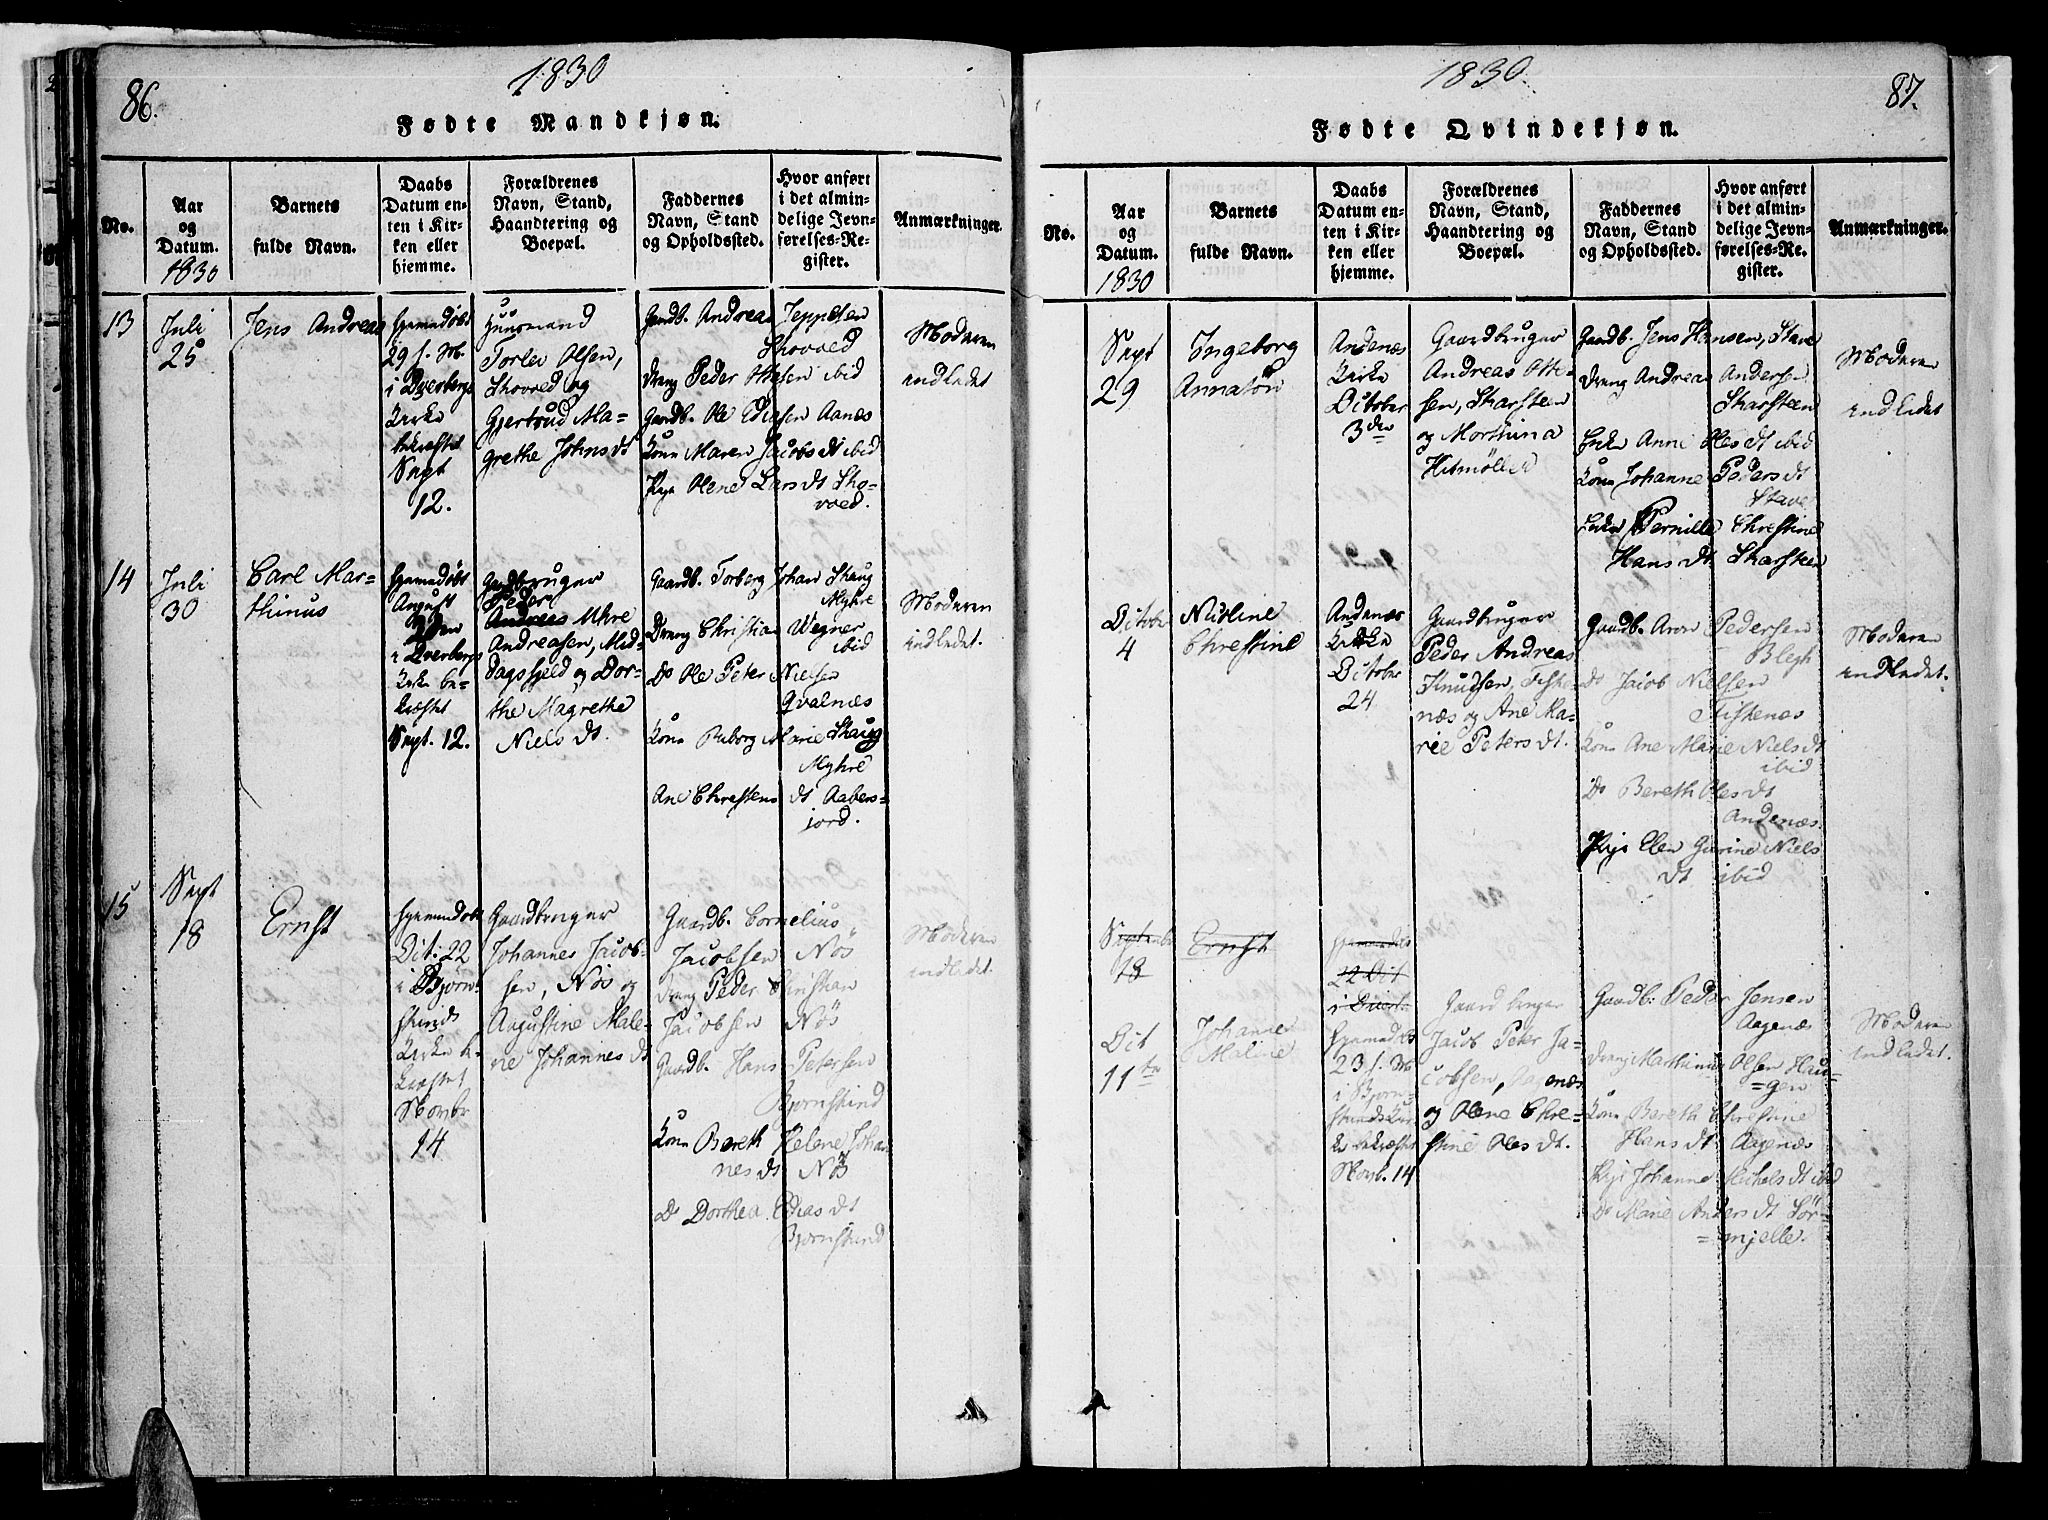 86.
1830
Fødte Mandkjøn.
No.
Aar
og
Datum.
1830
Barnets
fulde Navn.
Daabs
Datum en-
ten i Kir-
ken eller
hjemme.
Forældrenes
Navn, Stand,
Haandtering og
Boepæl.
Faddernes
Navn, Stand
og Opholdssted.
Hvor anført
i det almin-
delige Jevn-
førelses-Re-
gister.
Anmærkninger.
13
Juli
25
Jens Andreas
Hjemedøbt
29 s. M.
i Dverbergs
Kirke
bekræftet
Sept
12.
Huusmand
Torlev Olsen,
Skoved og
Gjertrud Ma-
grethe Johns dt
Gaardb. Andreas Jeppesen
Skoved
Dreng Peder Ottesen ibid
Gaardb. Ole Ediasen Aanæs
Kone Maren Jacobs dt ibid
Pige Olene Lars dt Sko-
ved.
Moderen
indledet
14
Juli
30
Carl Mar-
thinus
Hjemedøbt
August
i Dverbergs
Kirke be-
kræftet
Sept. 12.
Gaardbruger
Peder
Andreas Mhre
Andreasen, Mid-
dagsfjeld og Dor-
the Magrethe
Niels dt.
Gaardb. Torberg Johan Skaug
Myhre
Dreng Christian Wegner
ibid
Do Ole Peter Nielsen
Qvalnæs
Kone Reborg Marie Skaug
Myhre
Ane Chrestens dt Aabers-
jord.
Moderen
indledet.
15
Sept
18
Ernst
Hjemmedøbt
Oct. 22
i Bjørn-
skinds
Kirke be-
kræftet
Novbr
14
Gaardbruger
Johannes Jacob-
sen, Nøs og
Augustine Male-
ne Johannes dt
Gaardb. Cornelius
Jacobsen Nøs
Dreng Peder Christian
Jacobsen Nøs
Gaardb. Hans Petersen
Bjørnskind
Kone Bereth Helene Johan
nes dt Nøs
Do Dorthea Edias dt
Bjørnskind
Moderen
indledet.
1830.
87.
Fødte Qvindekjøn.
No.
Aar
og
Datum.
1830
Barnets
fulde Navn.
Daabs
Datum en-
ten i Kir-
ken eller
hjemme.
Forældrenes
Navn, Stand,
Haandtering og
Boepæl.
Faddernes
Navn, Stand
og Opholdssted.
Hvor anført
i det almin-
delige Jevn-
førelses-Re-
gister.
Anmærkninger.
Sept
29
Ingeborg
Annaton
Andenæs
Kirke
October
3die
Gaardbruger
Andreas Otte-
sen, Skarsteen
og Morthina
Hetmøller
Gaardb. Jens Hansen, Stave
Dreng Andreas Andersen
Skarsteen
Enke Anne Oles dt ibid
Kone Johanne Peders dt
Stave
Enke Pernille Chrestine
Hans dt Skarsteen
Moderen
indledet
October
4
Nicoline
Chrestine
Andenæs
Kirke
October
24
Gaardbruger
Peder Andreas
Knudsen, Fiske-
næs og Ane Ma-
rie Peters dt.
Gaardb. Aron Pedersen
Blegh
Do Jacob Nielsen
Fiskenæs
Kone Ane Marie Niels dt
ibid
Do Bereth Oles dt
Andenæs.
Pige Elen Gurine Niels
dt ibid
Moderen
indledet.
Septembr
18
Ernst
Hjemmedøbt
22 Oct
i Dverb-
Oct
11te
Johanne
Maline
Hjemedøbt
23 s. M
i Bjørn-
skinds Kir-
ke bekræftet
Novb. 14
Gaardbruger
Jacob Peter Ja-
cobsen, Aagenæs
og Olene Chre-
stine Oles dt.
Gaardb. Peder Jensen
Aagenæs
Dreng Marthinus Olsen Hau-
gen
Kone Bereth Chrestine
Hans dt Aagenæs
Pige Johanne Michels dt ibid
Do Marie Anders dt Sør-
mjelle.
Moderen
indledet.